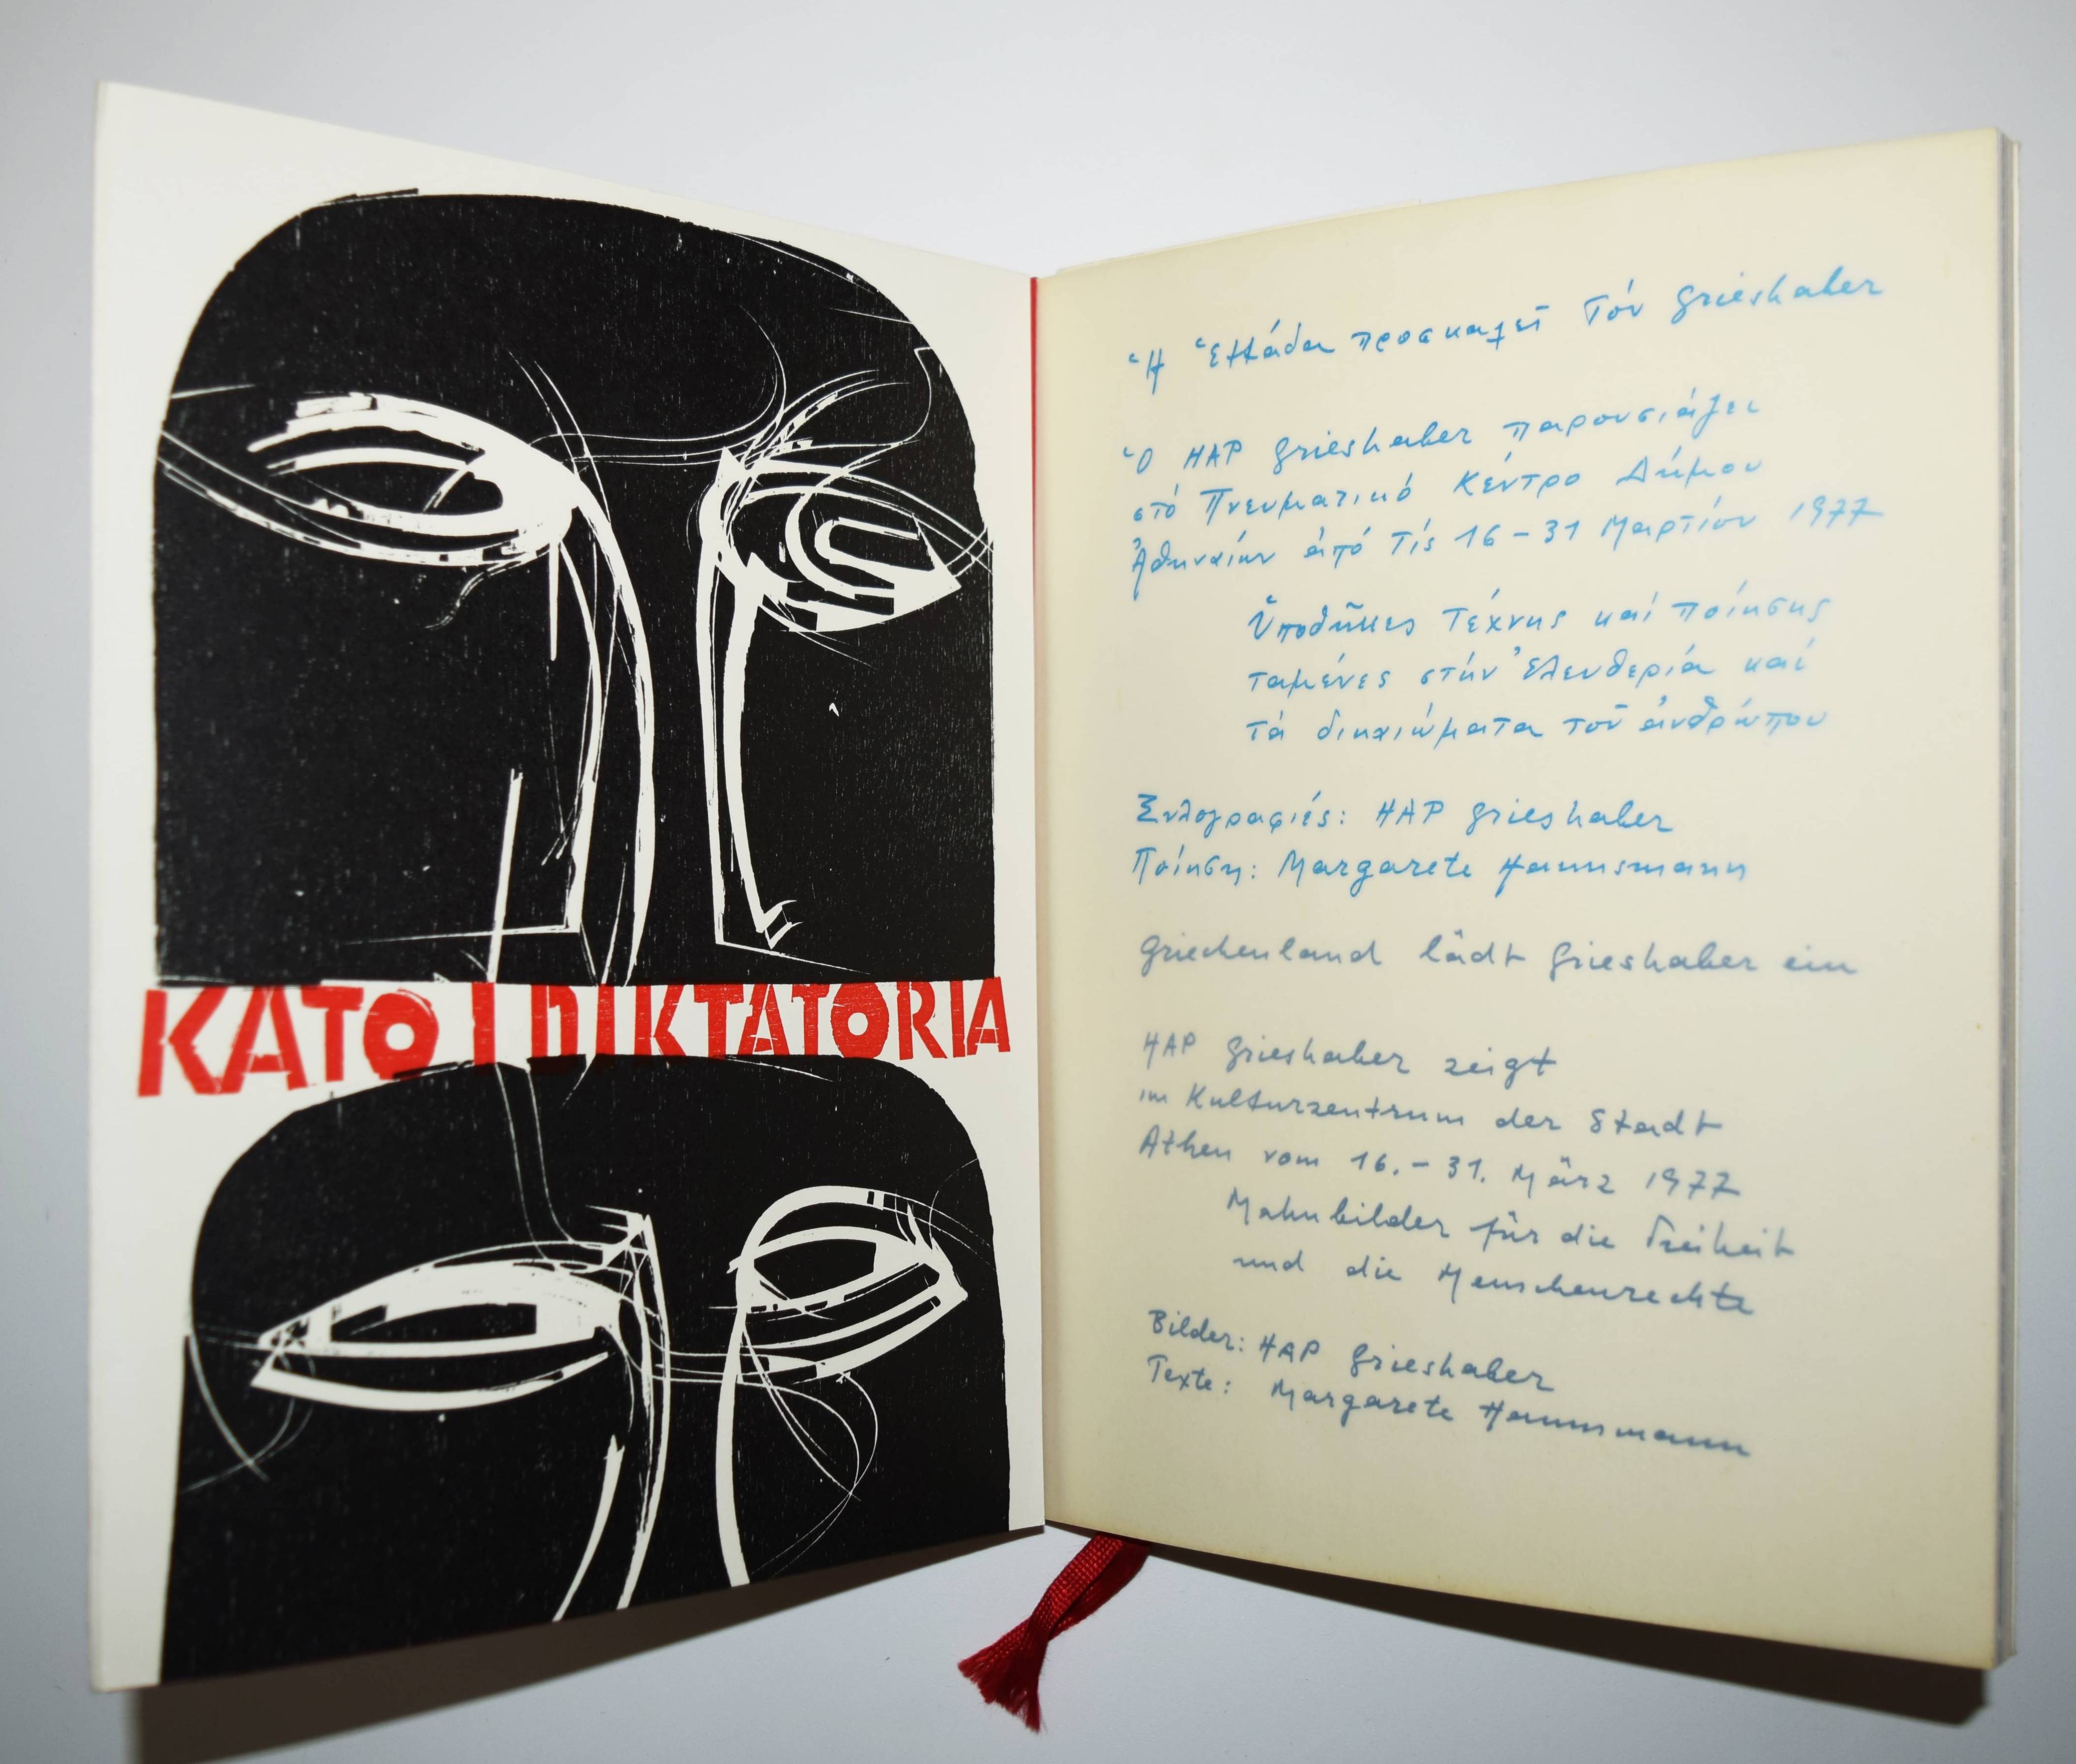 KATO I DIKTATORIA
Ἡ Ἑλλάδα προσκαλεῖ τόν Grieshaber
Ὁ HAP Grieshaber παρουσιάζει
στό Πνευματικό Κέντρο Δήμου
Ἀθηναίων ἀπό τίς 16 – 31 Μαρτίου 1977
Ὑποθῆκες τέχνης καί ποίησης
ταμένες στήν Ἐλευθερία καί
τά δικαιώματα τοῦ ἀνθρώπου
Ξυλογραφιές: HAP Grieshaber
Ποίηση: Margarete Hannsmann
Griechenland lädt Grieshaber ein
HAP Grieshaber zeigt
im Kulturzentrum der Stadt
Athen vom 16. – 31. März 1977
Mahnbilder für die Freiheit
und die Menschenrechte
Bilder: HAP Grieshaber
Texte: Margarete Hannsmann